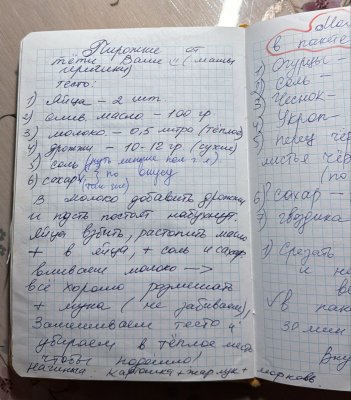 Пирожные от
тёти Вали !! (мамы
Тесто:
1) Яйца – 2 шт.
2) слив. масло – 100 гр
3) молоко – 0,5 литра (тёплое)
4) дрожжи – 10-12 гр (сухие)
5) соль (чуть меньше пол ч л)
6) сахар по вкусу
В молоко добавить дрожжи
и пусть постоят набухнут.
Яйца взбить, растопить масло
+ в яйца, + соль и сахар
вливаем молоко —>
всё хорошо размешать
+ мука (не забиваем),
Замешиваем тесто и
убираем в тёплое место
чтобы подошло!
Начинка: картошка + жар лук + морковь
в пакете
1) Огурцы –
2) Соль –
3) Чеснок –
4) Укроп –
5) перец чёр
листья чёр
(по
6) сахар –
7) гвоздика
1) Срезать
и на
в пак
30 мин
Вку